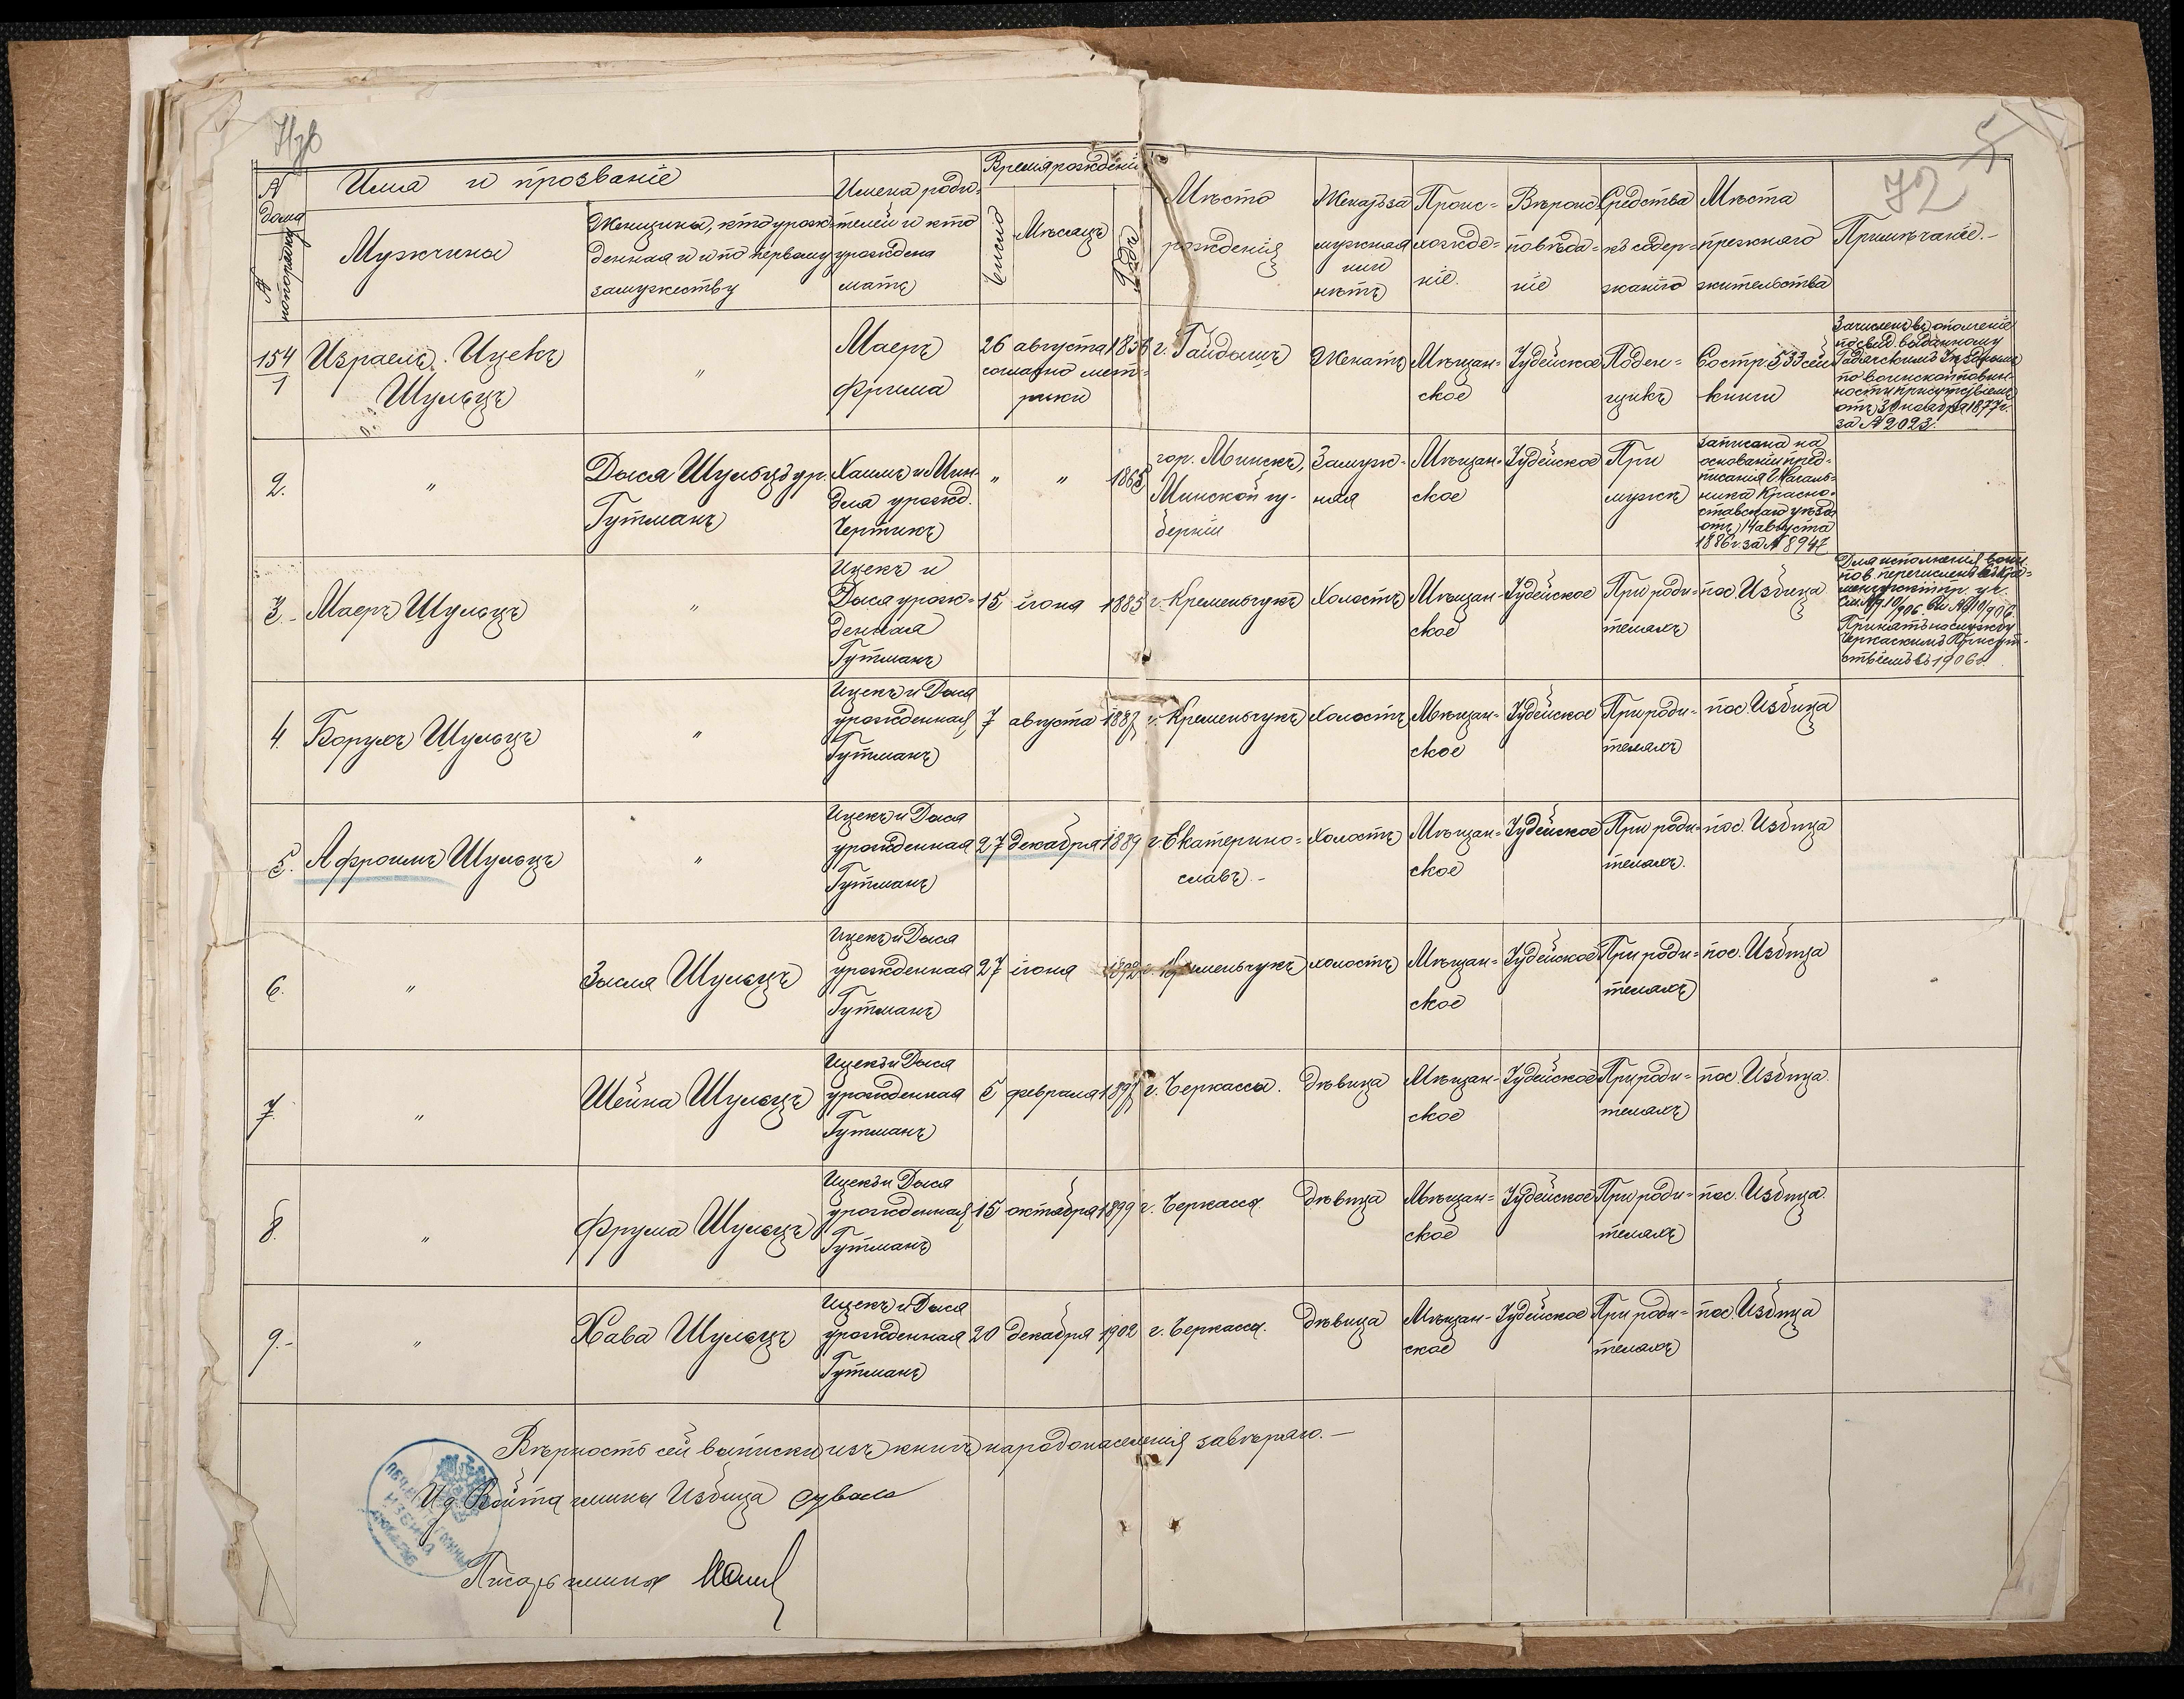 72
№ дома
№ по порядку
Имя и прозваніе
Мужчины
Женщины, кто урож-
денная и и по первому
замужеству
Имена роди-
телей и кто
урождена
мать
Время рожденія
Число
Мѣсяцъ
Годъ
Мѣсто
рожденія
Женатъ за
мужная
или
нѣтъ
Проис-
хожде-
ніе.
Вѣроис-
повѣда-
ніе
Средства
къ содер-
жанію
Мѣста
прежняго
жительства
Примѣчаніе.-
154
1
Израель Ицекъ
Шульцъ
"
Маеръ
Фрима
26 августа 1856
согласно мет-
рики
г. Гайдышъ
Женатъ
Мѣщан-
ское
Іудейское
Поден-
щикъ
Со стр. 533 сей
книги
Зачисленъ въ ополченіе
по свид. выданному
по воинской повин-
ности присутствіемъ
отъ 30 ноября 1877 г.
за № 2023.
2.
"
Дыся Шульцъ ур.
Гутманъ
Хаимъ и Мин-
для урожд.
Чертикъ
" " 1865
гор. Минскъ,
Минской гу-
берніи
Замуж-
няя
Мѣщан-
ское
Іудейское
При
мужѣ
записана на
основаніи пред-
писанія Началь-
ника Красно-
ставскаго уѣзда
отъ 14 августа
1886 г. за № 8947
3.-
Маеръ Шульцъ
"
Ицекъ и
Дыся урож-
денная
Гутманъ
15 іюня 1885
г. Кременчукъ
Холостъ
Мѣщан-
ское
Іудейское
При роди-
теляхъ
пос. Избица
Для исполненія воин.
пов. перечисленъ въ Кре-
Принятъ на службу
Черкаскимъ Присут-
ствіемъ въ 1906 г.
4.
Борухъ Шульцъ
"
Ицекъ и Дыся
урожденная
Гутманъ
7 августа 1887
г. Кременчукъ
Холостъ
Мѣщан-
ское
Іудейское
При роди-
теляхъ
пос. Избица
5.
Афроимъ Шульцъ
"
Ицекъ и Дыся
урожденная
Гутманъ
27 декабря 1889
г. Екатерино-
славъ.-
Холостъ
Мѣщан-
ское
Іудейское
При роди-
теляхъ.
пос. Избица
6.
"
Зысля Шульцъ
Ицекъ и Дыся
урожденная
Гутманъ
27 іюня 1892
г. Кременчукъ
холостъ
Мѣщан-
ское
Іудейское
При роди-
теляхъ
пос. Избица
7.
"
Шейна Шульцъ
Ицекъ и Дыся
урожденная
Гутманъ
5 февраля 1897
г. Черкассы.
дѣвица
Мѣщан-
ское
Іудейское
При роди-
теляхъ
пос. Избица.
8.
"
Фрума Шульцъ
Ицекъ и Дыся
урожденная
Гутманъ
15 октября 1899
г. Черкассы
дѣвица
Мѣщан-
ское
Іудейское
При роди-
теляхъ
пос. Избица.
9.-
"
Хава Шульцъ
Ицекъ и Дыся
урожденная
Гутманъ
20 декабря 1902
г. Черкассы.
дѣвица
Мѣщан-
ское
Іудейское
При роди-
теляхъ
пос. Избица
Вѣрность сей выписки изъ книгъ народонаселенія завѣряю.-
Ид Войта гмины Избица
Писарь гмины